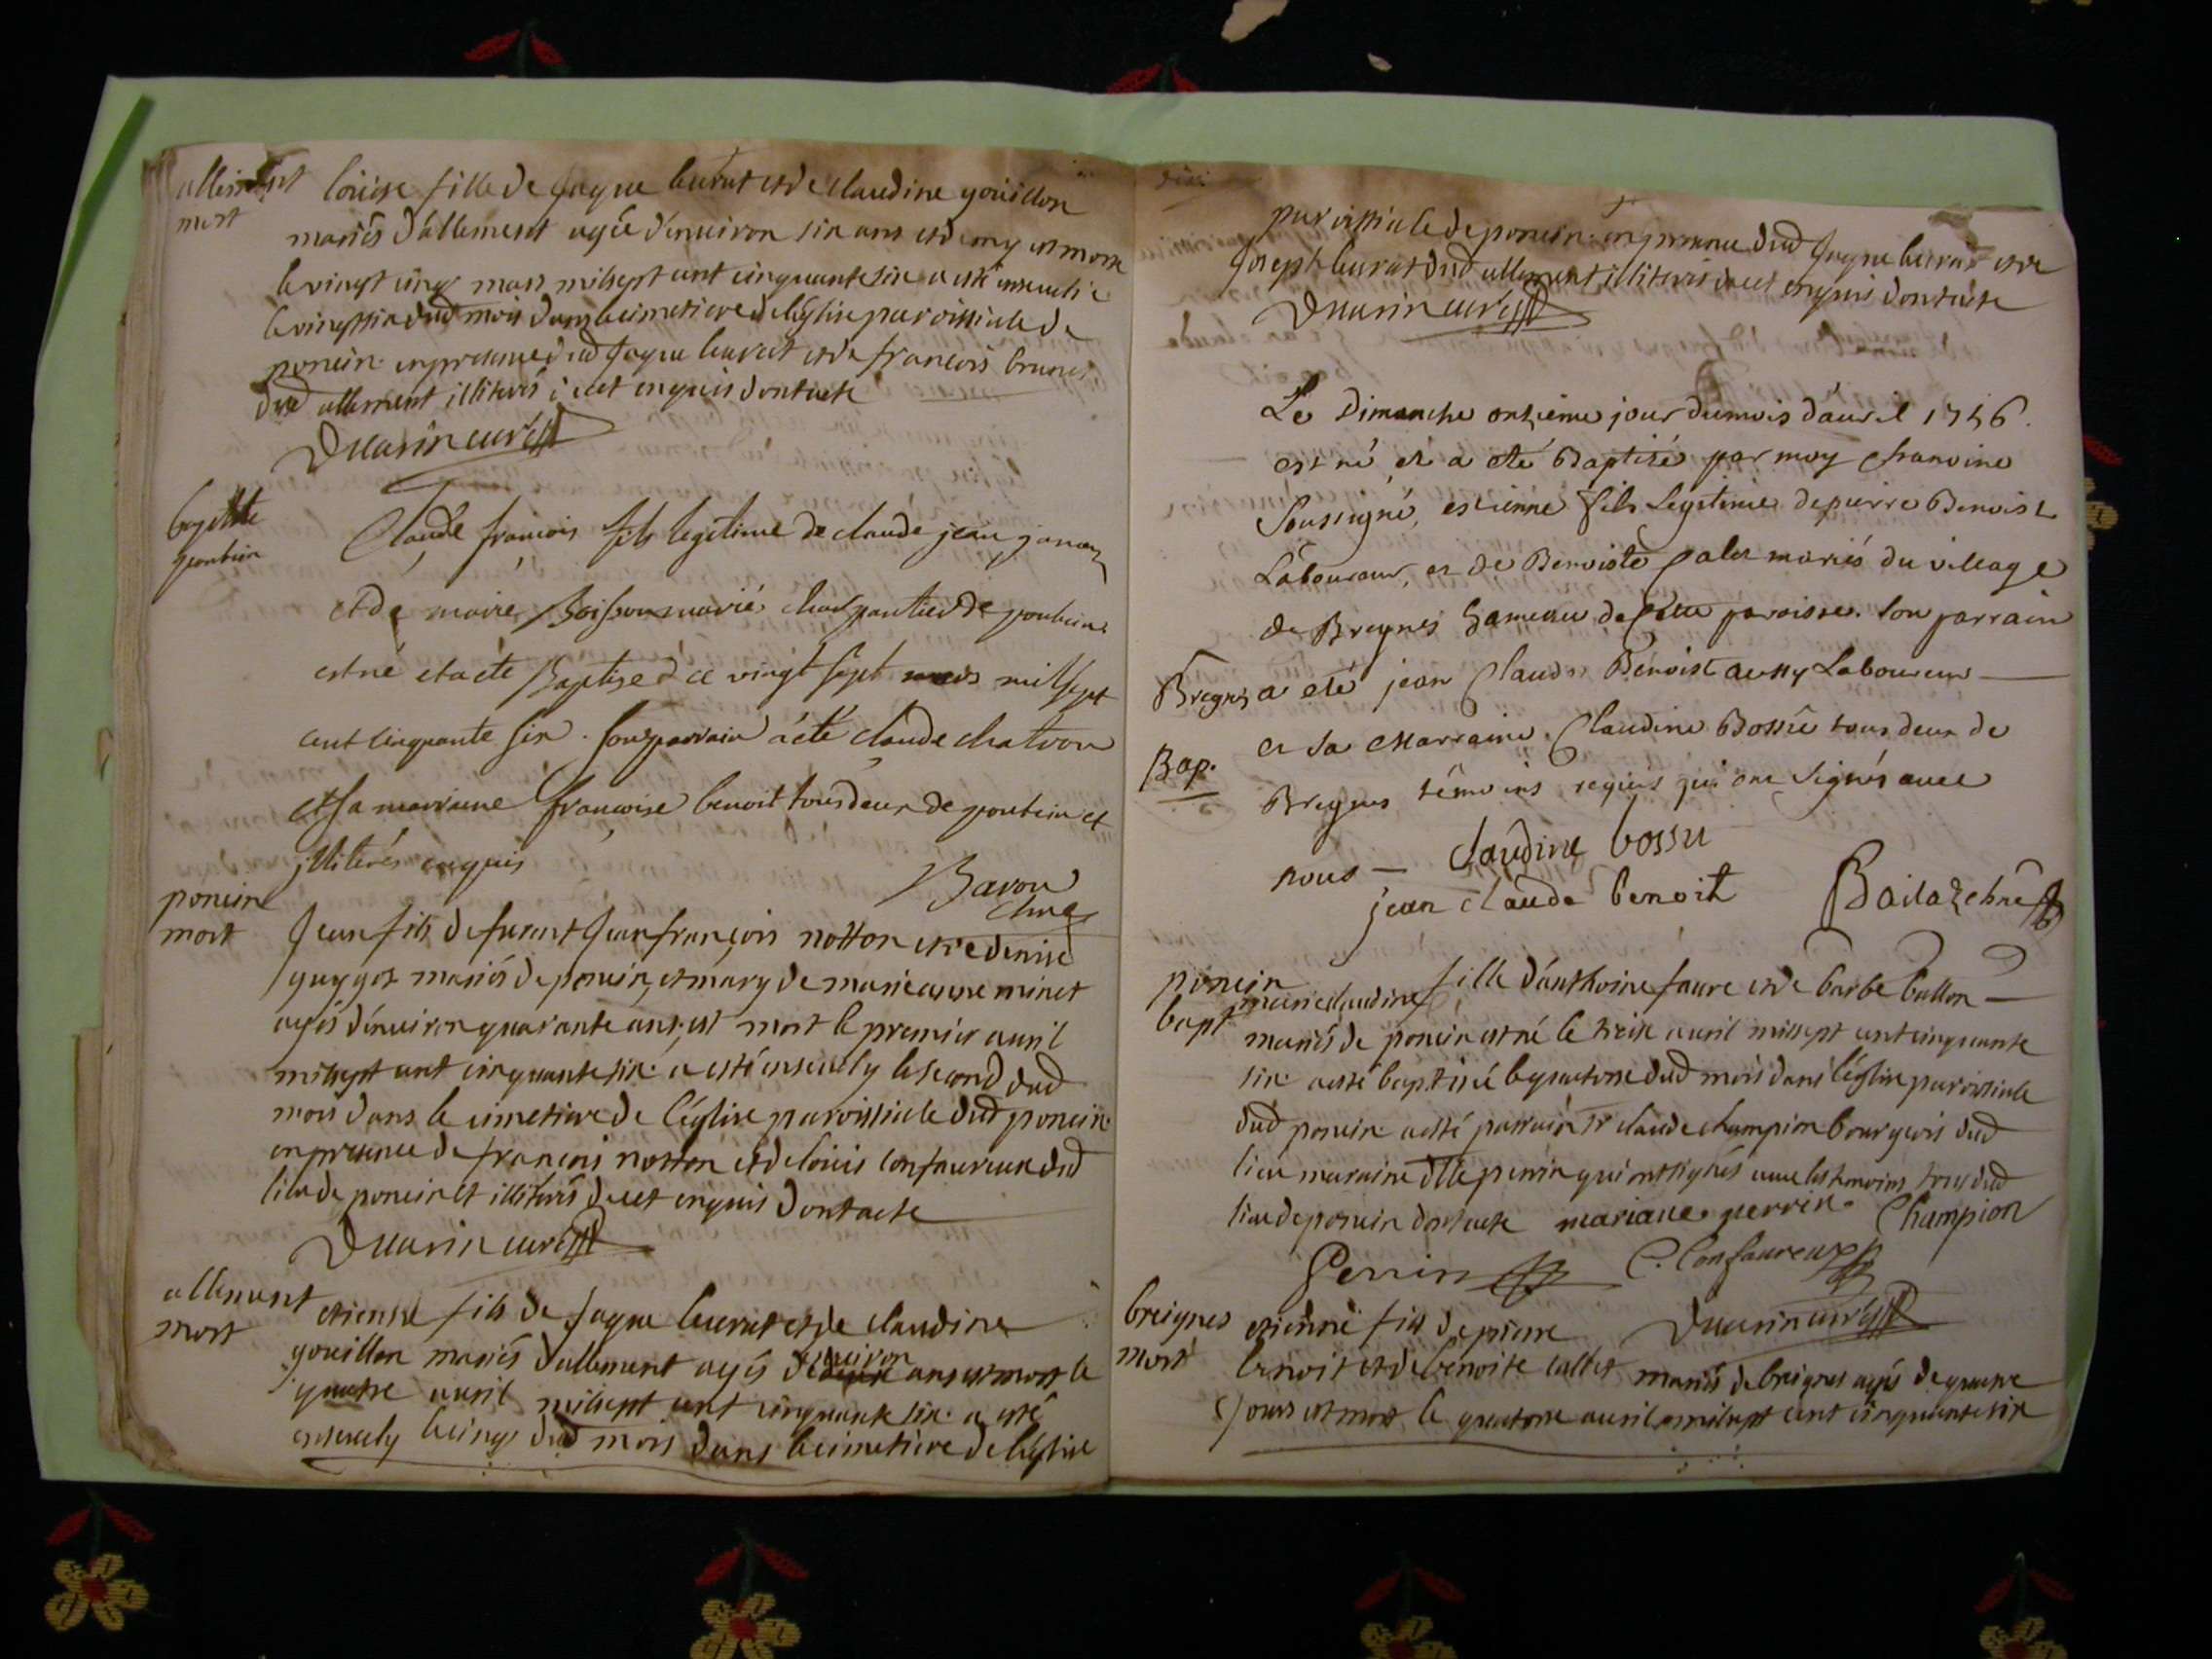 allement
mort
Loüise fille de Jaque beurat et de claudine goüillon
mariés d'allement agée d'environ six ans et demy est morte
le vingt cinq mars mil sept cent cinquante six a esté ensevelie
le vingt six dud mois dans le cimetiere de l'église paroissiale de
poncin en presence dud Jaque beurat et de françois brunet
dud allement illiterés de cet enquis dont acte
Duarin curé
baptiste
pontcin
Claude françois fils legitime de claude jean
et de marie Boisson mariés charpantier de pontcin
est né et a été Baptisé ce vingt sept mars mil sept
cent cinquante six. son parrain a été claude chatron
et sa marraine françoise benoit tous deux de pontcin et
illiterés enquis
Baron
chne
poncin
mort
Jean fils defunt Jean françois notton et de denise
guygot mariés de poncin, et mary de marie anne minet
agés d'environ quarante ans, est mort le premier avril
mil sept cent cinquante six. a esté ensevely le second dud
mois dans le cimetiere de l'église paroissiale dud poncin
en presence de françois notton et de loüis confaureux dud
lieu de poncin et illiterés de cet enquis dont acte
Duarin curé
allemant
mort
etienne fils de Jaque beurat et de claudine
goüillon mariés d'allement agés d'environ ans est mort le
quatre avril mil sept cent cinquante six. a esté
ensevely le cinq dud mois dans le cimetiere de l'église
paroissiale de poncin en presence dud Jaque beurat et de
Joseph beurat dud allement illiterés de cet enquis dont acte
Duarin curé
Le Dimanche onzième jour du mois d'avril 1756.
est né et a été Baptisé par moy chanoine
Soussigné, estienne fils Legitime de pierre Benoist
Laboureur, et de Benoiste Calet mariés du village
de Bregnes hameau de Cette paroisse. son parrain
Bregnes a été jean Claude Benoist aussy Laboureur
Bap.
et sa Marraine Claudine Bossü tous deux de
Bregnes témoins requis qui ont Signés avec
nous — claudine bossu
jean claude benoit
chne
poncin
bapt
marie claudine fille d'anthoine faure et de barbe ballon
mariés de poncin est né le treize avril mil sept cent cinquante
six. a esté baptisé le quatorze dud mois dans l'église paroissiale
dud poncin a esté parrain Sr claude champion bourgeois dud
lieu maraine dlle perrin qui ont signés avec les temoins tous dud
lieu de poncin dont acte mariane perrin Champion
Perrin C. Confaureux
Duarin curé
breignes
mort
etienne fils de pierre
benoit et de benoite callet mariés de breignes agés de quatre
jours est mort le quatorze avril mil sept cent cinquante six